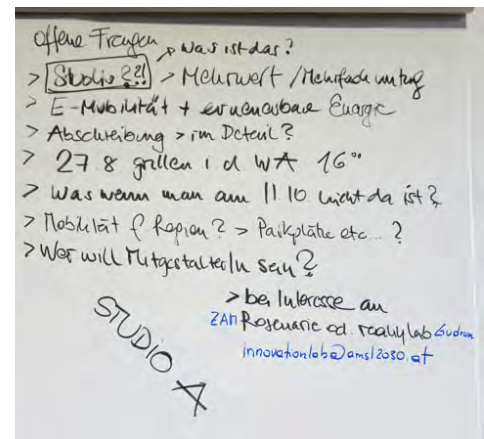 offene Fragen
> Was ist das?
> Studio ??! > Mehrwert / Mehrfachnutzung
> E-Mobilität + erneuerbare Energie
> Abschreibung > im Detail?
> 27 8 grillen i d WA 16°°
> Was wenn man am 11 10 nicht da ist?
> Mobilität f Region? > Parkplätze etc... ?
> Wer will MitgestalterIn sein?
> bei Interesse an
ZAM Rosemarie od. realitylab Gudrun
innovationlab@ams12030.at
STUDIO A